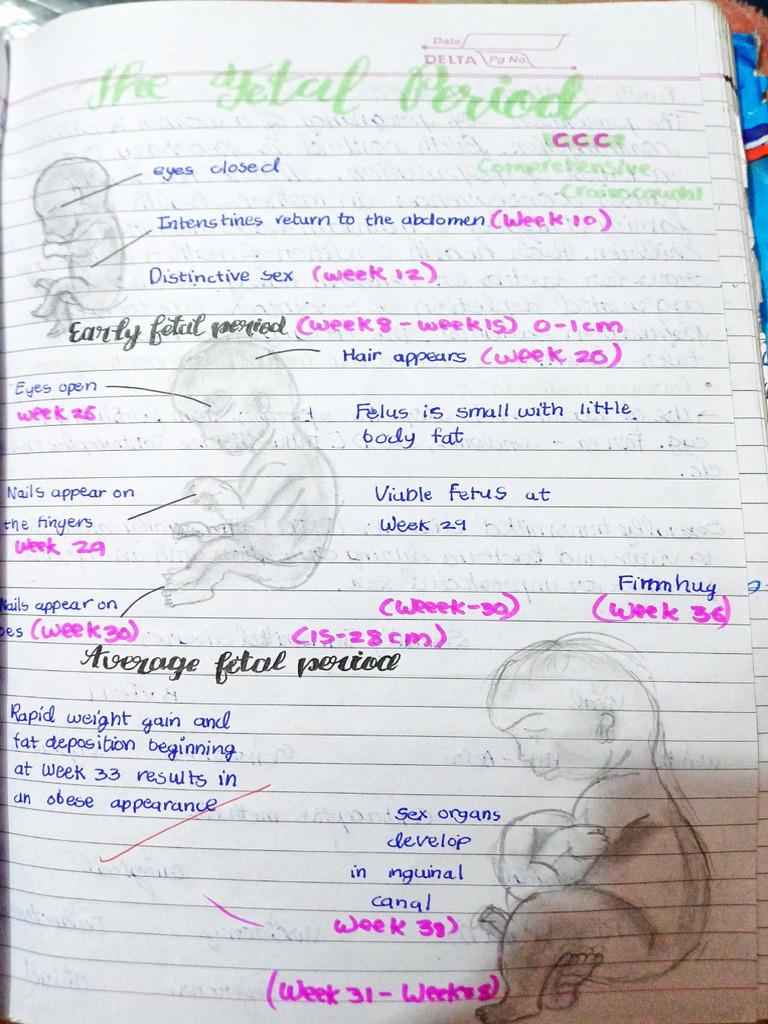 Date
DELTA Pg No
The Fetal Period
CCC
Comprehensive
Crainocaudal
eyes closed
Intenstines return to the abdomen (Week 10)
Distinctive sex (week 12)
Early fetal period (week 8 - week 15) 0-1cm
Hair appears (week 26)
Eyes open
week 26
Fetus is small with little
body fat
Nails appear on
the fingers
week 29
Viable Fetus at
Week 29
Nails appear on
oes (week 30)
(Weeek-30)
Firmhug
(Week 36)
(15-28cm)
Average fetal period
Rapid weight gain and
fat deposition beginning
at week 33 results in
an obese appearance
Sex organs
develop
in inguinal
canal
Week 38)
(Week 31 - Week 38)